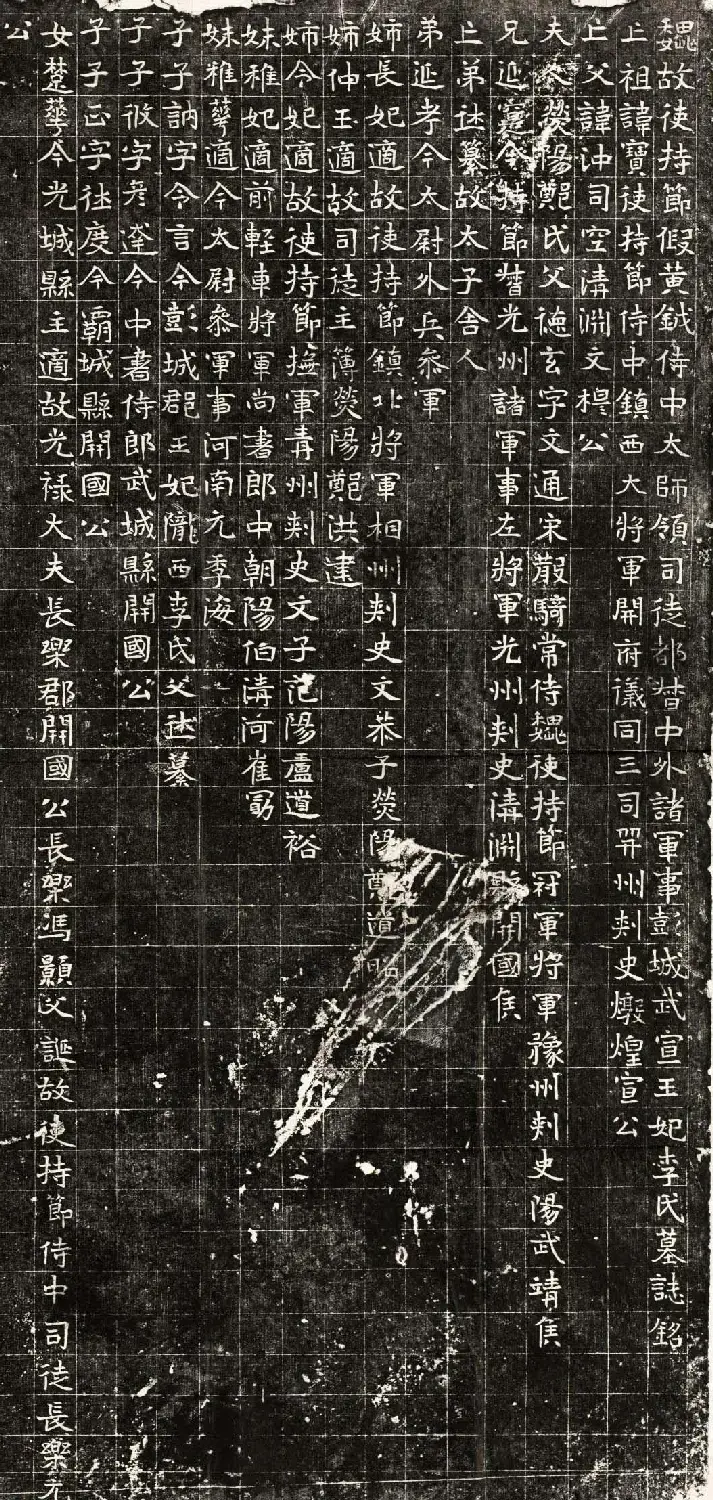 魏故使持節假黃鉞侍中太師領司徒都督中外諸軍事彭城武宣王妃李氏墓誌銘
亡祖諱寶使持節侍中鎮西大將軍開府儀同三司并州刾史燉煌宣公
亡父諱沖司空清淵文穆公
夫人滎陽鄭氏父德玄字文通宋散騎常侍魏使持節冠軍將軍豫州刾史陽武靖侯
兄延寔今持節督光州諸軍事左將軍光州刾史清淵縣開國侯
亡弟休纂故太子舍人
弟延考今太尉外兵叅軍
姉長妃適故使持節鎮北將軍相州刾史文恭子滎陽鄭道昭
姉仲玉適故司徒主簿滎陽鄭洪建
姉令妃適故使持節撫軍青州刾史文子范陽盧道裕
妹稚妃適前輕車將軍尚書郎中朝陽伯清河崔勗
妹稚華適今太尉叅軍事河南元季海
子子訥字令言今彭城郡王妃隴西李氏父休纂
子子攸字彥達今中書侍郎武城縣開國公
子子正字休度今霸城縣開國公
女楚華今光城縣主適故光祿大夫長樂郡開國公長樂馮顥父誕故使持節侍中司徒長樂元
公